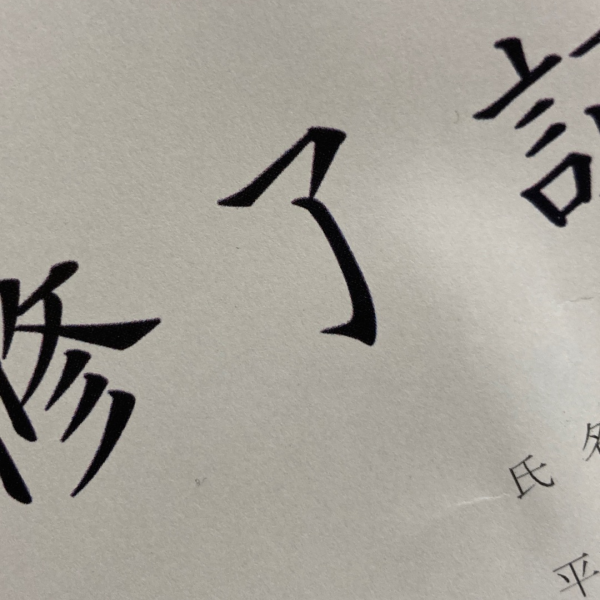 修了証
氏名
平